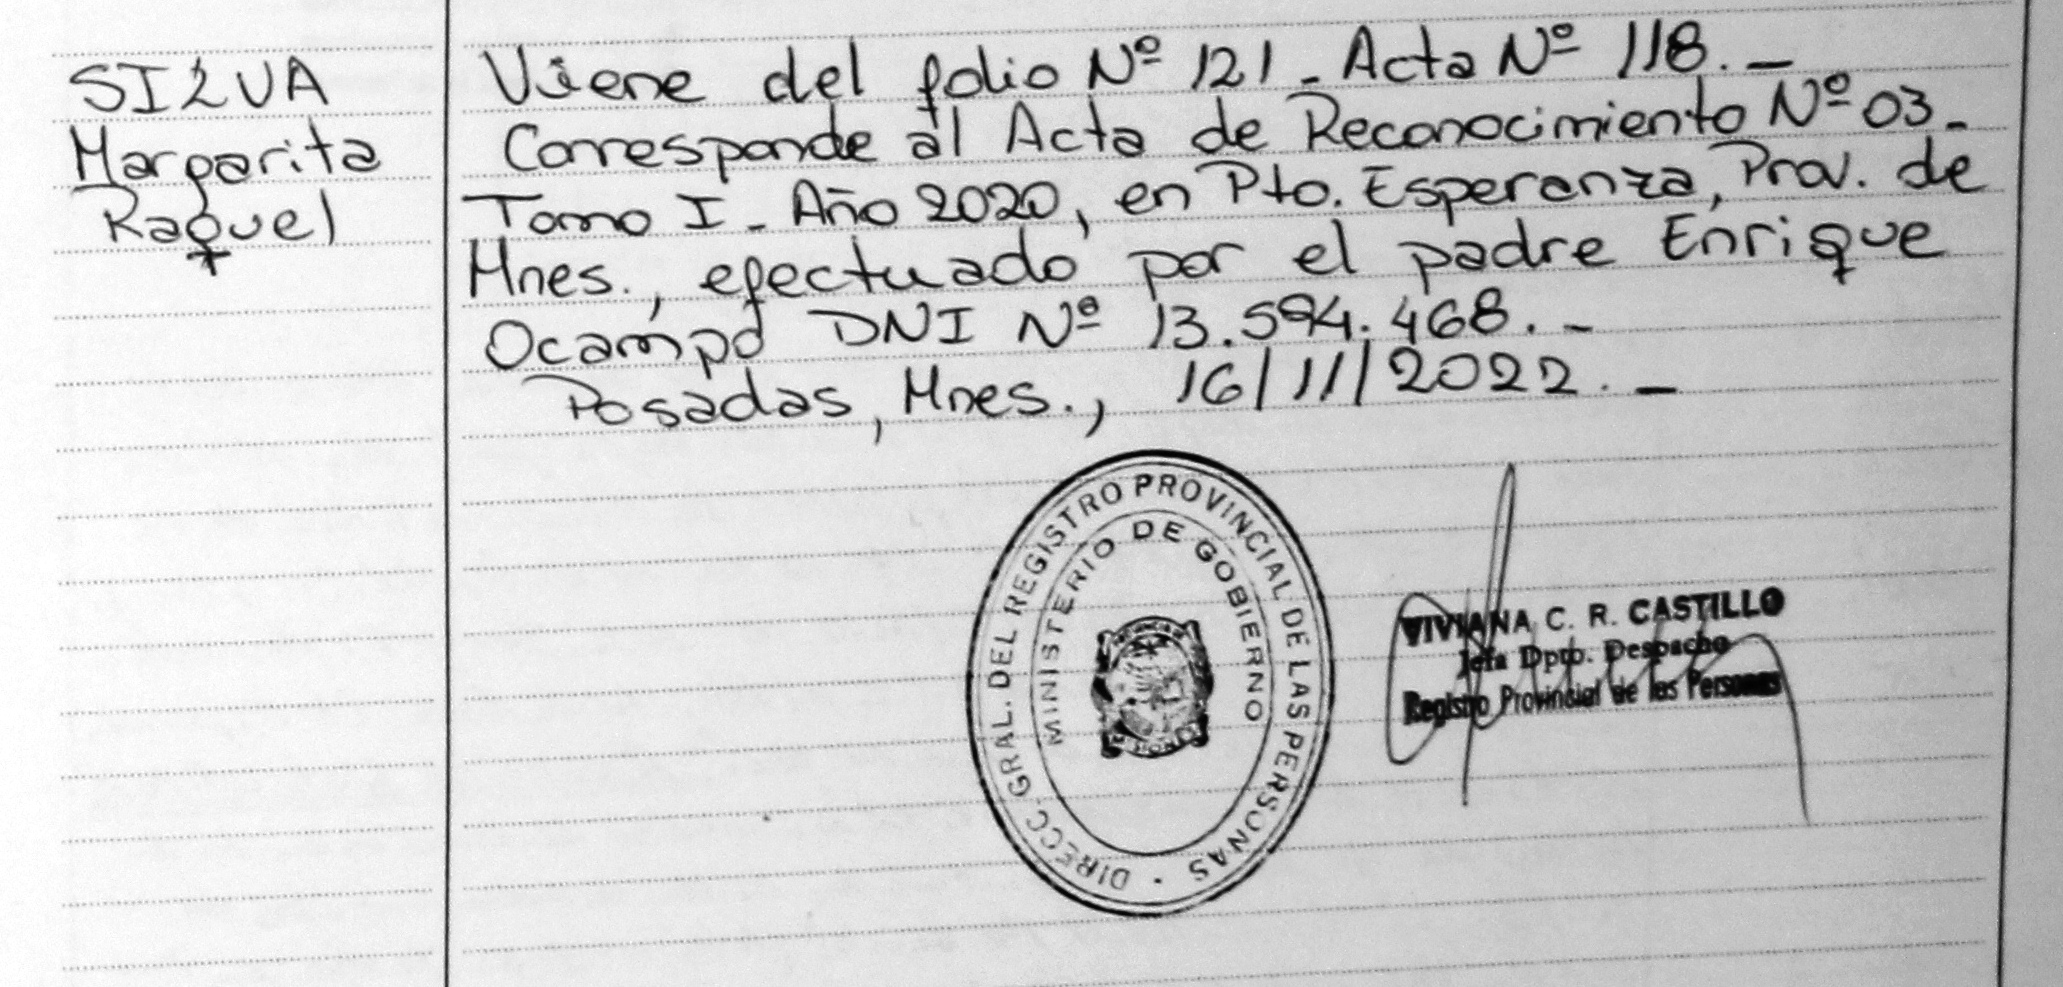 SILVA
Margarita
Raquel
Viene del folio Nº 121 - Acta Nº 118. -
Corresponde al Acta de Reconocimiento Nº 03 -
Tomo I - Año 2020, en Pto. Esperanza, Prov. de
Mnes., efectuado por el padre Enrique
Ocampo DNI Nº 13.594.468. -
Posadas, Mnes., 16/11/2022. -
DIRECC GRAL. DEL REGISTRO PROVINCIAL DE LAS PERSONAS ·
MINISTERIO DE GOBIERNO
VIVIANA C. R. CASTILLO
Jefa Dpto. Despacho
Registro Provincial de las Personas